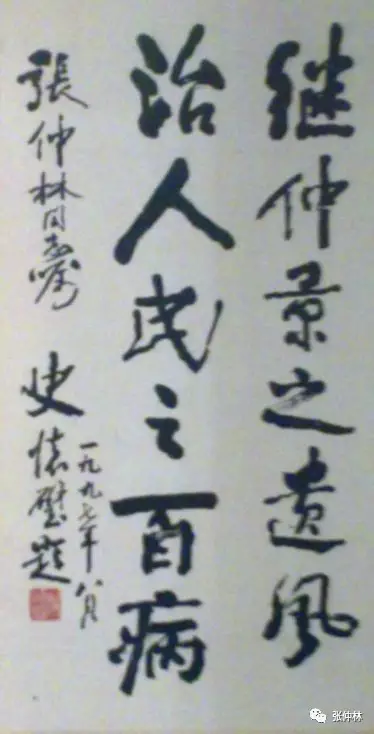 继仲景之遗风
治人民之百病
張仲林同志嘱
史懷璧题
一九九七年八月
张仲林